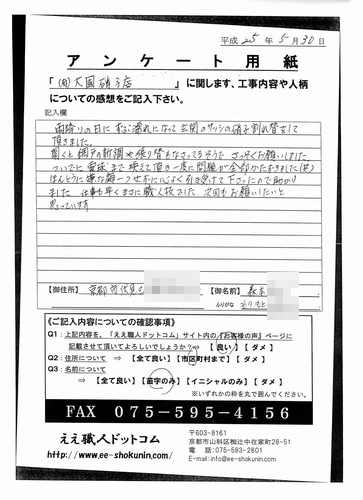 平成 25 年 5 月 30 日
アンケート用紙
「 (有)大國硝子店 」に関します、工事内容や人柄
についての感想をご記入下さい。
記入欄
雨降りの日に ずぶ濡れになって 玄関のサッシの硝子割れ替えして
頂きました。
聞くと 網戸の新調や張り替もなさってるそうで さっそくお願いしました。
ついでに 電球まで 換えて頂き 一度に問題が全部かたずきました(笑)
ほんとうに 嫌な顔一つせずに 心よく引き受けて下さったので 助かり
ました 仕事も早くまさに職人技でした 次回もお願いしたいと
思っています
【御住所】 京都市伏見区
【御名前】 森本
ふりがな もりもと
《ご記入内容についての確認事項》
Q1:上記内容を、「ええ職人ドットコム」サイト内の「お客様の声」ページに
記載させて頂いてよろしいでしょうか? ⇒ 【 良い 】 【 ダメ 】
Q2:住所について ⇒ 【全て良い】 【市区町村まで】 【 ダメ 】
Q3:名前について
⇒ 【全て良い】 【苗字のみ】 【イニシャルのみ】 【 ダメ 】
※いずれかの枠を丸で囲んでください。
FAX 075-595-4156
ええ職人ドットコム
http://www.ee-shokunin.com/
〒603-8161
京都市山科区椥辻中在家町28-51
電 話:075-583-2801
E-mail:info@ee-shokunin.com